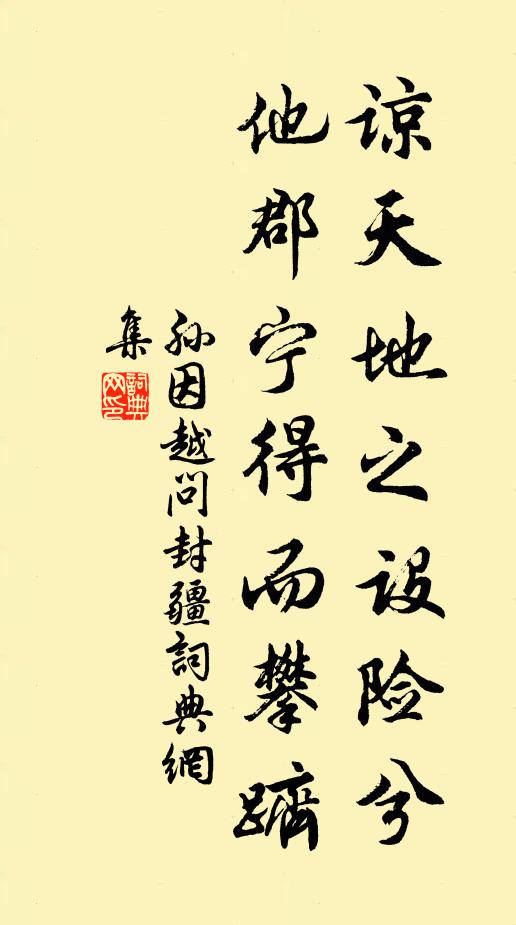 谅天地之设险兮
他郡宁得而攀躋
孙因越问封疆詞典網
集
詞典网印